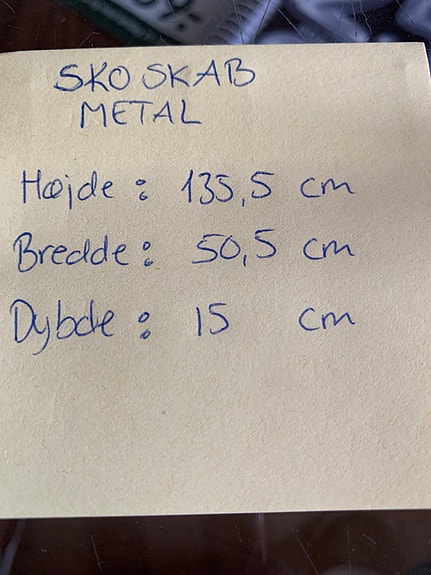 SKO SKAB
METAL
Højde : 135,5 cm
Bredde : 50,5 cm
Dybde : 15 cm